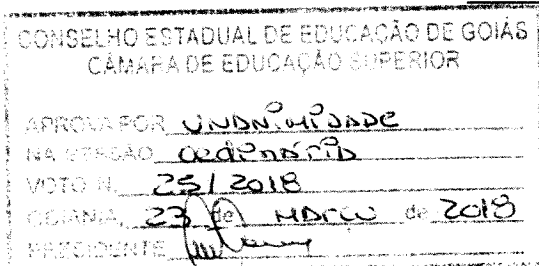 CONSELHO ESTADUAL DE EDUCAÇÃO DE GOIÁS
CÂMARA DE EDUCAÇÃO SUPERIOR
APROVA POR UNANIMIDADE
NA SESSÃO ORDINÁRIA
VOTO N. 25/2018
GOIANIA, 23 de MARÇO de 2018
PRESIDENTE